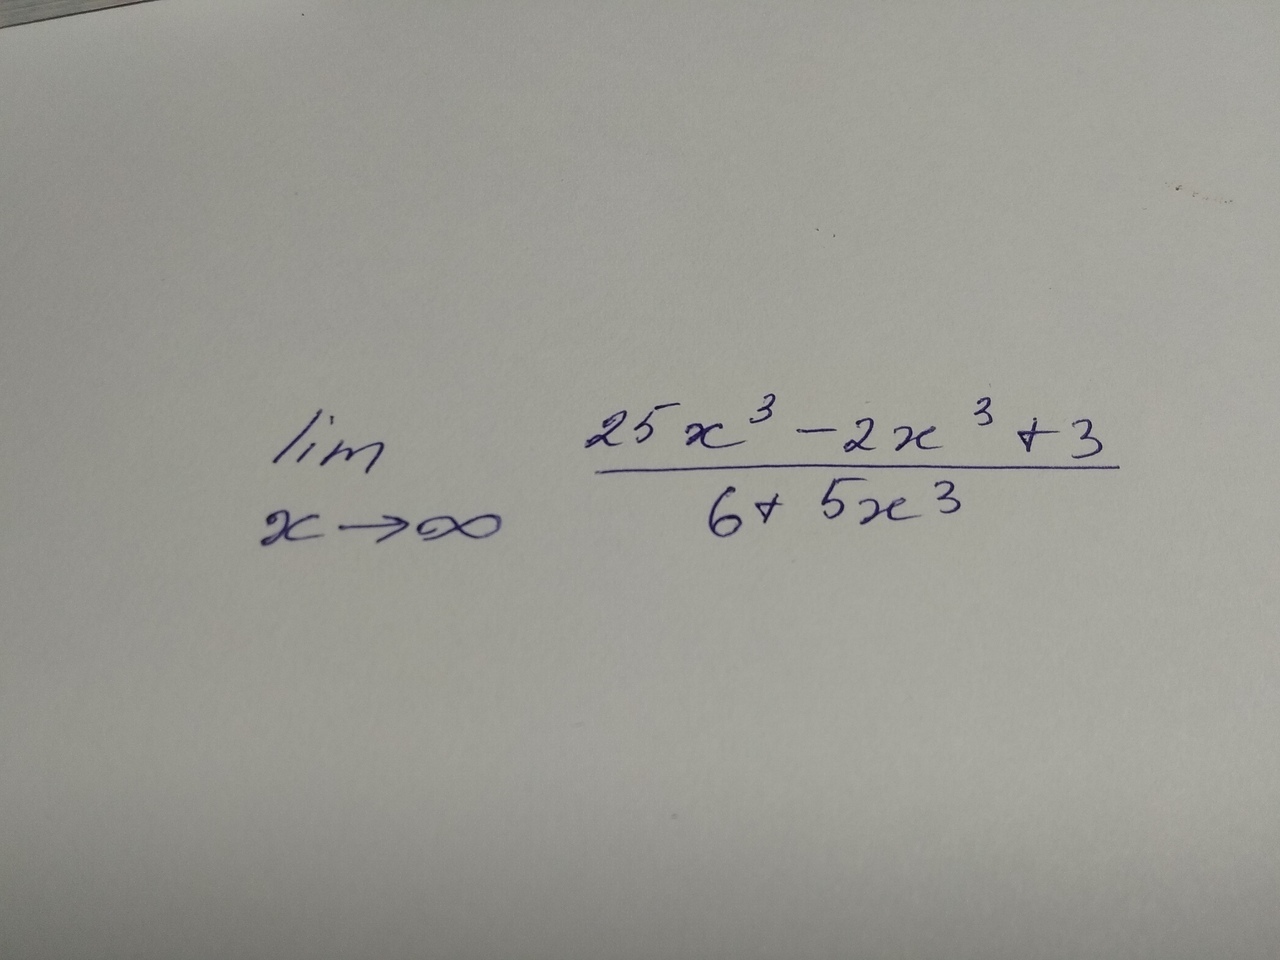 lim 25x³ - 2x³ + 3
x → ∞ 6 + 5x³